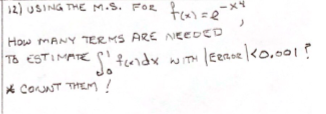 12) USING THE M.S. FOR f(x) = e^{-x^4},
HOW MANY TERMS ARE NEEDED
TO ESTIMATE ∫_0^1 f(x)dx WITH |ERROR|<0.001?
* COUNT THEM!